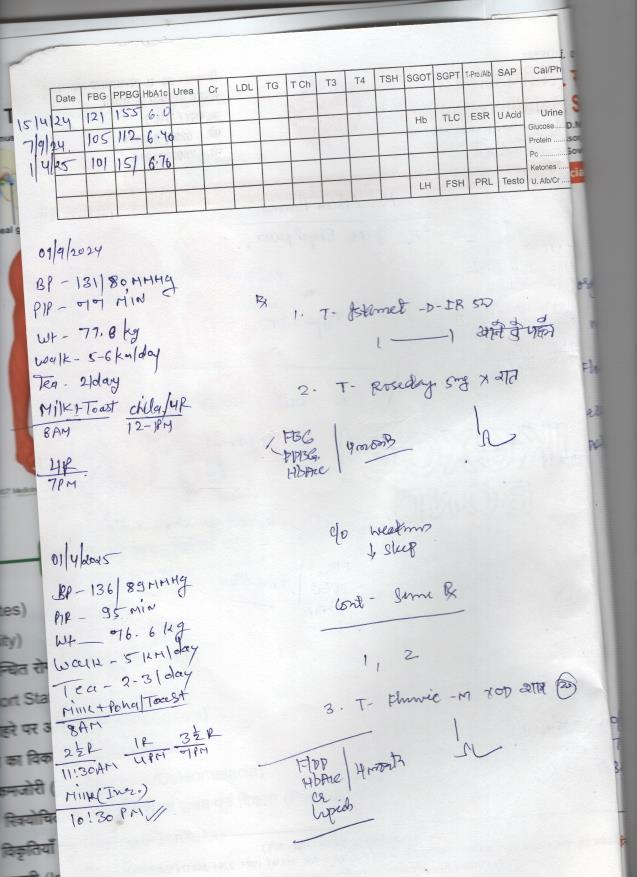 Date FBG PPBG HbA1c Urea Cr LDL TG T Ch T3 T4 TSH SGOT SGPT T-Pro./Alb SAP Cal/Ph
15/4/24 121 155 6.0
7/9/24 105 112 6.40
1/4/25 101 151 6.70
Hb TLC ESR U Acid Urine
Glucose
Protein
Pc
Ketones
LH FSH PRL Testo U. Alb/Cr
BP - 131/80 MMHg
MIN
Wt - 77.8 kg
Walk - 5-6 km/day
Tea - 2/day
Milk+Toast chila/4R
8AM 12-1PM
4R
7PM
Rx
1. T- Istamet -D-IR
1 — 1
2. T- Roseday 5mg x रात
FBG
PPBG
HbA1c
4 month
01/4/2025
BP - 136/89 MMHg
95 MIN
Wt 76.6 kg
Walk - 5 KM/day
Tea - 2-3/day
Milk+Poha/Toast
8AM
2½R 1R 3½R
11:30AM 4PM 7PM
Milk
10:30 PM
c/o weakness
↓ sleep
Cont - Same Rx
1, 2
3. T- -M x OD
HbA1c
Cr
Lipids
4 month